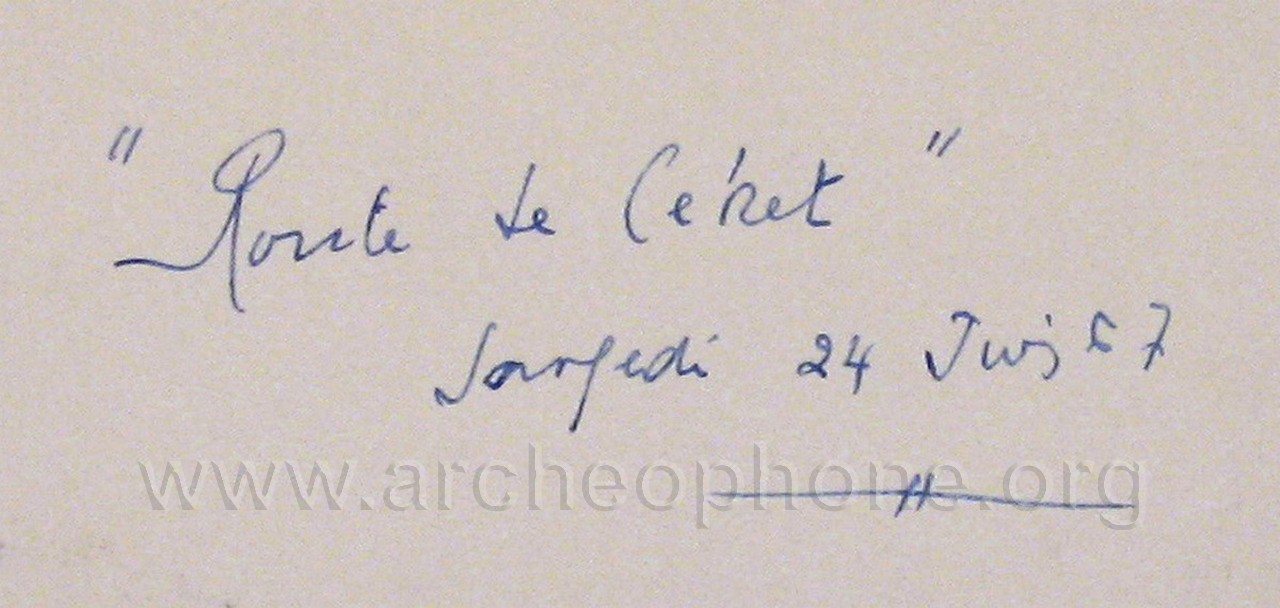 " Route de Céret "
Samedi 24 Juin 67
www.archeophone.org